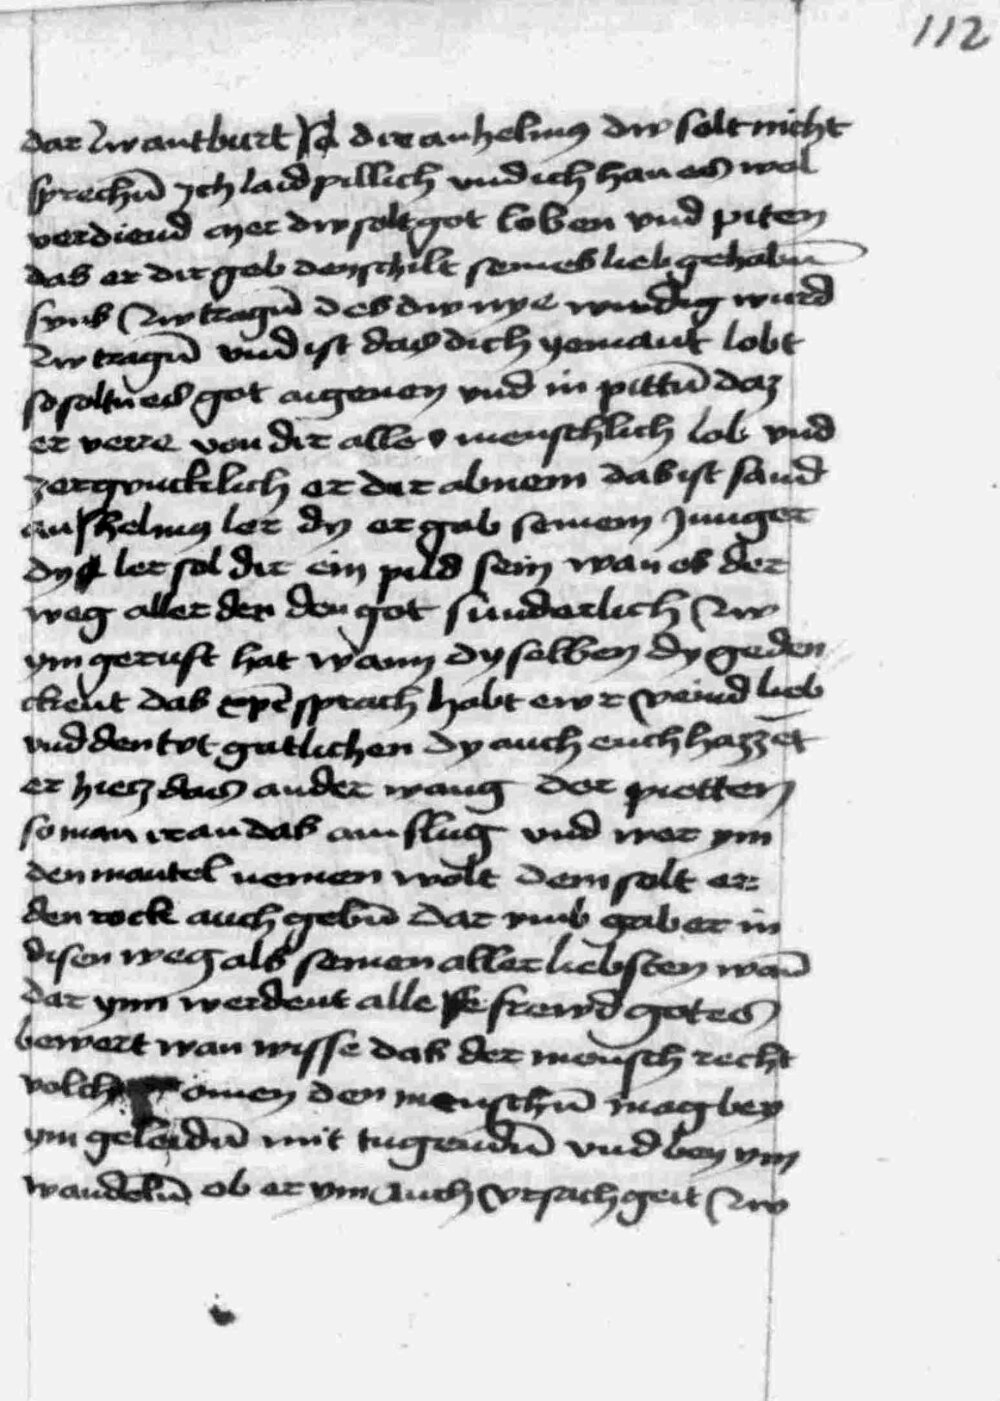 112
dar zw antburt dir anhelmus dw solt nicht
sprechn̄ ich laid pillich vnd ich han es wol
verdiend mer dw solt got loben vnd piten
das er dir geb den schilt seines lieb gehabn̄
suns zw tragn̄ des dw nye wirdig wurd
zw tragn̄ vnd ist das dich yemant lobt
so soltu es got aigenen vnd in pittn̄ daz
er verre von dir alles menschlich lob vnd
zergencklich er dir abnem das ist sand
anshelmus ler dy er gab seinem Junger
dy ler sol dir ein pild sein wan es der
weg aller der den got sunderlich zw
ym geruft hat wann dy selben dy geden
ckent das xp̄c sprach habt ewr veind lieb
vnd den tvt gutlichen dy auch euch hazzet
er hiez das ander wang der pietten
so man ir an das ain slug vnd wer ym
den mantel nemen wolt dem solt er
den rock auch gebn̄ dar vmb gab er in
disen weg als seinen aller liebsten wan̄
dar ynn werdent alle frewd gotes
bewert wan wisse das der mensch recht
volchomen den menschn̄ mag bey
ym geleidn̄ mit tugendn̄ vnd bey ym
wandeln̄ ob er ym auch vrsach geit zw